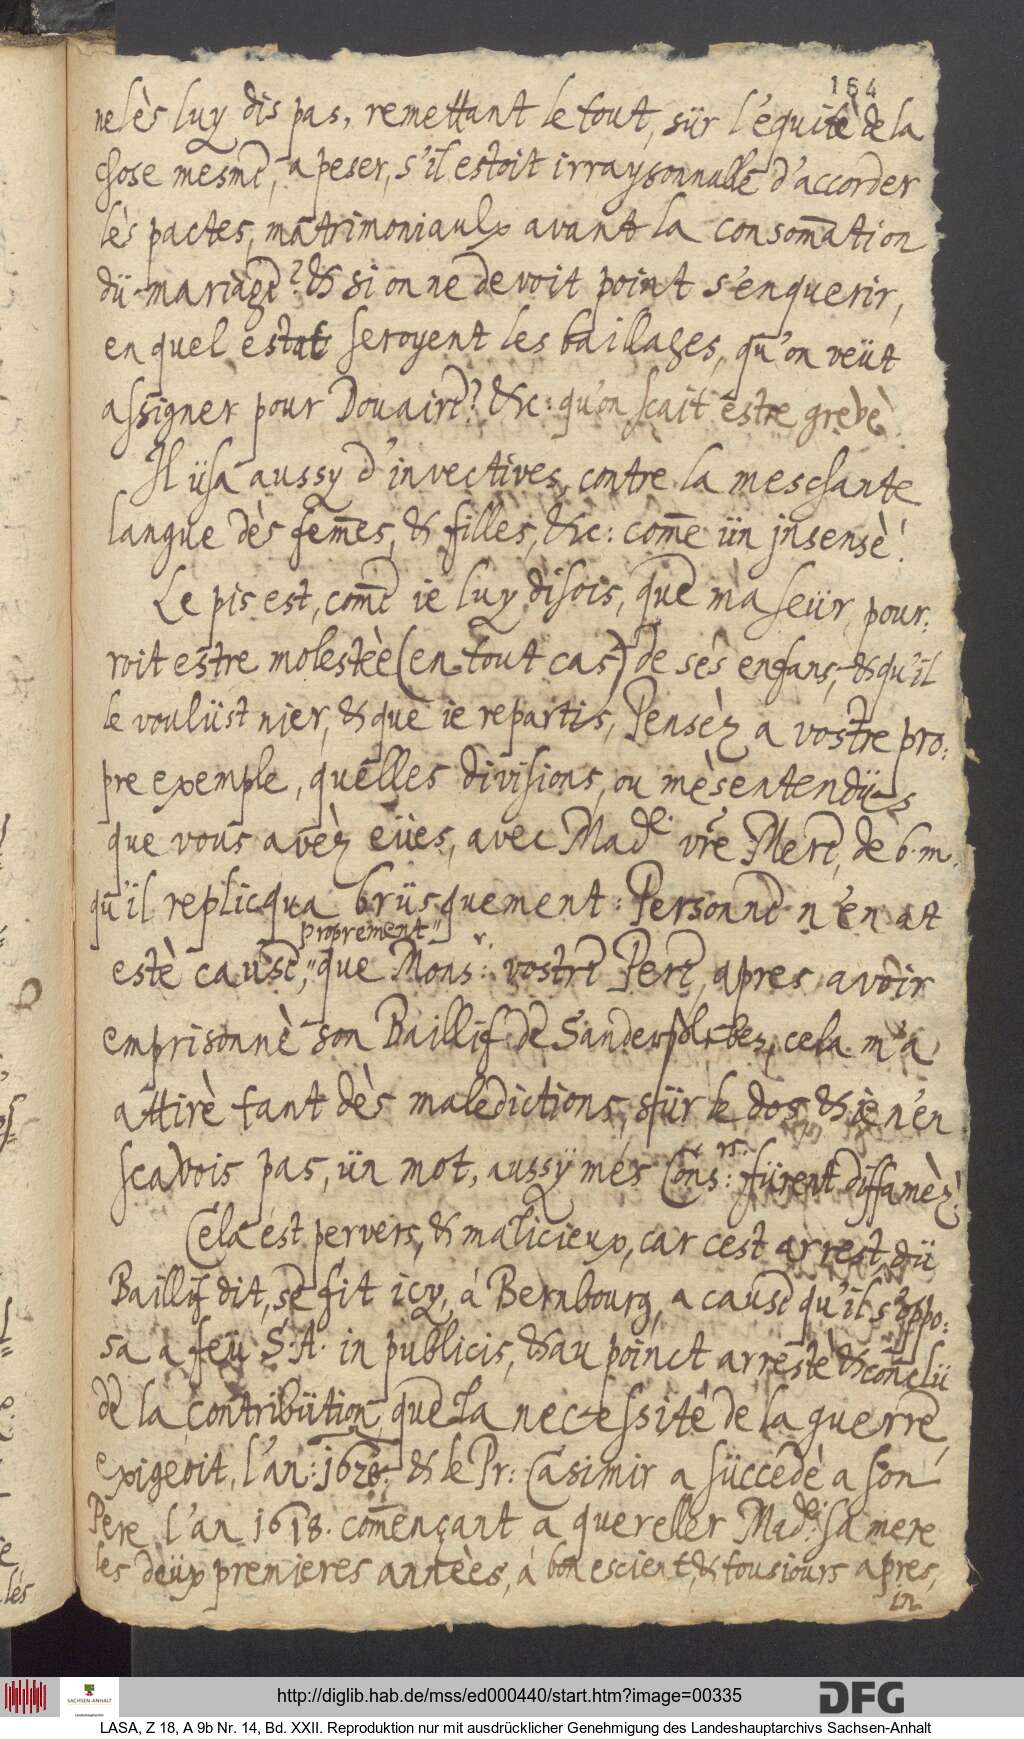 164
ne lès luy dis pas, remettant le tout, sür l'équitè de la
chose mesme, a peser, s'il estoit irraysonnable d'accorder
lès pactes, matrimoniaulx avant la consom̅ation
dü mariage? & si on ne devoit point s'enquerir,
en quel estat seroyent les baillages, qu'on veüt
assigner pour Douaire? &c: qu'on scait estre grevè
Il üsa aussy d'invectives, contre la meschante
langue dès fem̅es, & filles, &c: com̅e ün jnsensè!
Le pis est, com̅e ie luy disois, que ma seür, pour:
roit estre molestèe (en tout cas) de sès enfans, & qu'il
le voulüst nier, & que ie repartis, Pensèz a vostre pro:
pre exemple, quelles divisions, ou mèsentendües
que vous avèz eües, avec Mad.e vre̅ Mere, de b. m.
qu'il replicqua brüsquement: Personne n'en at
proprement"
estè cause," que Mons:r vostre Pere, apres avoir
emprisonnè son Baillif de Sandersleben, cela m'a
attirè tant dès maledictions, sür le dos, & ie n'en
scavois pas, ün mot, aussy mès Cons:rs fürent diffamèz!
Cela est pervers, & malicieux, car cest arrest dü
Baillif dit, se fit icy, á Bernbourg, a cause qu'il s'oppo:
sa a feü S. A. in publicis, & au poinct arrestè & conclü
de la contribütion, que la necessitè de la guerre
exigeoit, l'an: 1628. & le Pr: Casimir a süccedè a son
Pere l'an 1618. com̅ençant a quereller Mad.e sa mere
les deüx premieres annèes, á bon escient, & tousiours apres,
in
http://diglib.hab.de/mss/ed000440/start.htm?image=00335
SACHSEN-ANHALT
Landeshauptarchiv
DFG
LASA, Z 18, A 9b Nr. 14, Bd. XXII. Reproduktion nur mit ausdrücklicher Genehmigung des Landeshauptarchivs Sachsen-Anhalt